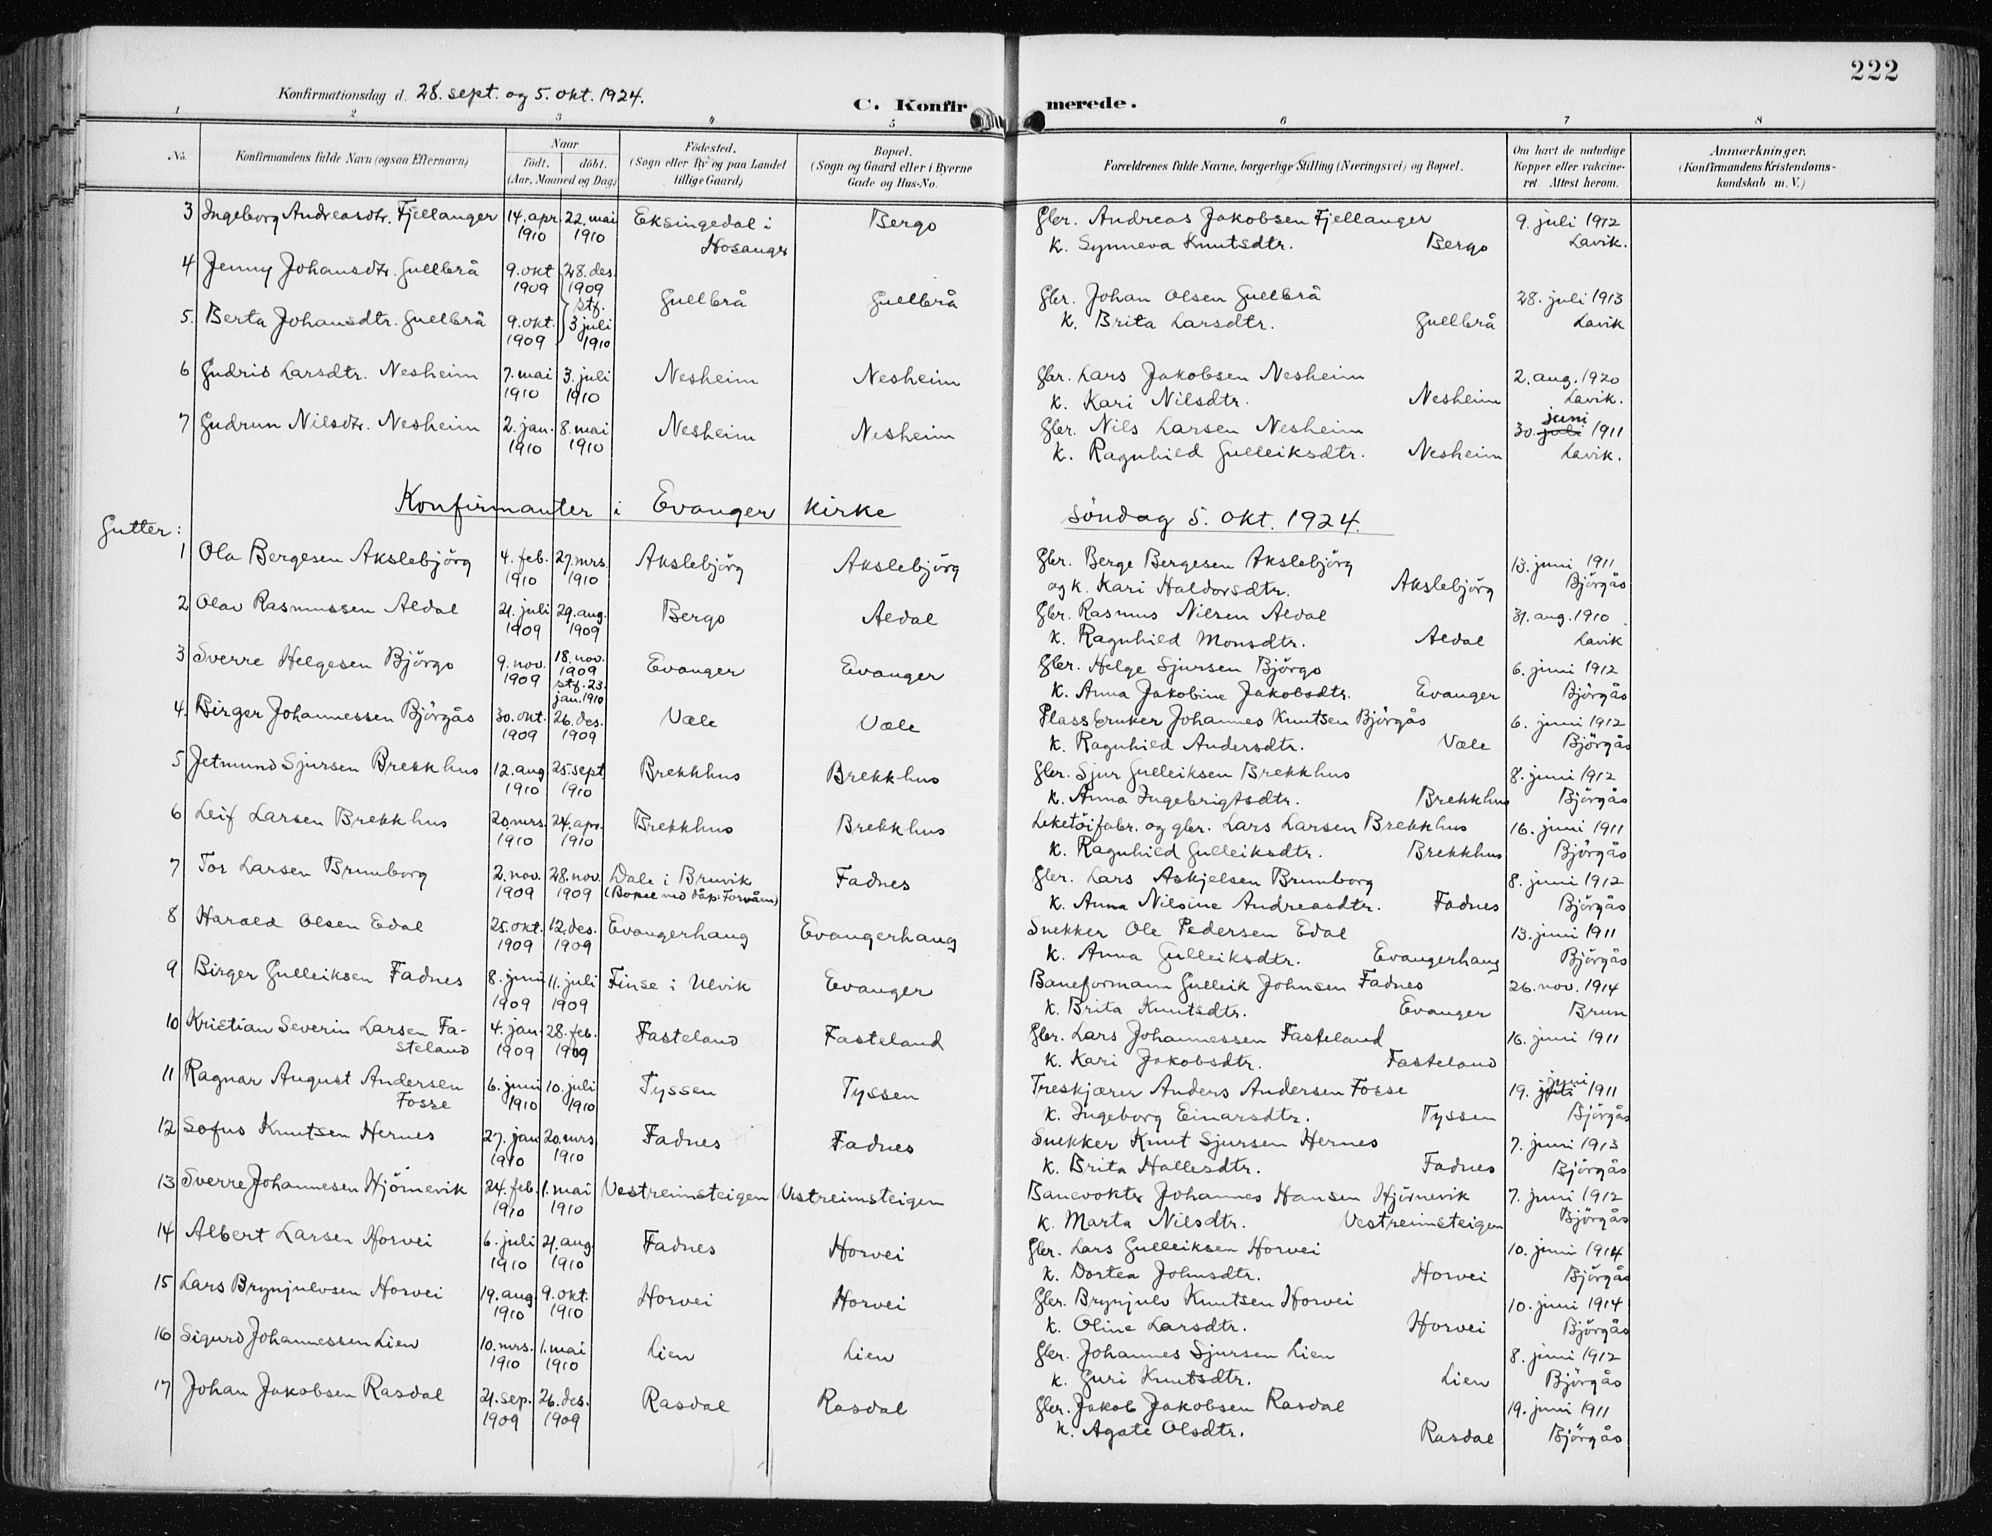 222
Konfirmationsdag d. 28. sept. og 5. okt. 1924.
C. Konfirmerede.
1 2 3 4 5 6 7 8
No.
Konfirmandens fulde Navn (ogsaa Efternavn)
Naar
født. døbt.
(Aar, Maaned og Dag)
Fødested.
(Sogn eller By og paa Landet
tillige Gaard)
Bopæl.
(Sogn og Gaard eller i Byerne
Gade og Hus-No.
Forældrenes fulde Navne, borgerlige Stilling (Næringsvei) og Bopæl.
Om havt de naturlige
Kopper eller vakcine-
ret. Attest herom.
Anmærkninger.
(Konfirmandens Kristendoms-
kundskab m. V.)
3 Ingeborg Andreasdtr. Fjellanger 14. apr. 22. mai Eksingedal i Bergo Gbr. Andreas Jakobsen Fjellanger 9. juli 1912
1910 1910 Hosanger k. Synneva Knutsdtr. Bergo Lavik.
4 Jenny Johansdtr. Gullbrå 9. okt 28. des.
1909 1909
stf. Gullbrå Gullbrå Gbr. Johan Olsen Gullbrå 28. juli 1913
5. Berta Johansdtr. Gullbrå 9. okt. 3 juli k. Brita Larsdtr. Gullbrå Lavik
1909 1910
6 Gudrid Larsdtr. Nesheim 7. mai 3. juli Nesheim Nesheim Gbr. Lars Jakobsen Nesheim 2. aug. 1920
1910 1910 k. Kari Nilsdtr. Nesheim Lavik.
7 Gudrun Nilsdtr. Nesheim 2. jan. 8. mai Nesheim Nesheim Gbr. Nils Larsen Nesheim 30. juli juni 1911
1910 1910 k. Ragnhild Gulleiksdtr. Nesheim Lavik.
Konfirmanter i Evanger kirke söndag 5. okt. 1924.
Gutter:
1 Ola Bergesen Akslebjörg 4. feb. 27. mrs. Akslebjörg Akslebjörg Gbr. Berge Bergesen Akslebjörg 13. juni 1911
1910 1910 og k. Kari Haldorsdtr. Akslebjörg Björgås
2 Olav Rasmussen Aldal 21. juli 29. aug. Bergo Aldal Gbr. Rasmus Nilsen Aldal 31. aug. 1910
1909 1909 k. Ragnhild Monsdtr. Aldal Lavik
3 Sverre Helgesen Björgo 9. nov. 18. nov. Evanger Evanger Gbr. Helge Sjursen Björgo 6. juni 1912
1909 1909
stf. 23. jan. 1910 k. Anna Jakobine Jakobsdtr. Evanger Björgås
4. Birger Johannessen Björgås 30. okt. 26. des. Væle Væle Plassbruker Johannes Knutsen Björgås 6. juni 1912
1909 1909 k. Ragnhild Andersdtr. Væle Björgås
5 Jetmund Sjursen Brekkhus 12. aug. 25. sept Brekkhus Brekkhus Gbr. Sjur Gulleiksen Brekkhus 8. juni 1912
1910 1910 k. Anna Ingebrigtsdtr. Brekkhus Björgås
6 Leif Larsen Brekkhus 20. mrs. 24. apr. Brekkhus Brekkhus Leketöifabr. og gbr. Lars Larsen Brekkhus 16. juni 1911
1910 1910 k. Ragnhild Gulleiksdtr. Brekkhus Björgås
7 Tor Larsen Brumborg 2. nov. 28. nov. Dale i Bruvik Fadnes Gbr. Lars Askjelsen Brumborg 8. juni 1912
1909 1909 (Bopæl ved dåp: Forvåen) k. Anna Nilsine Andreasdtr. Fadnes Björgås
8 Harald Olsen Edal 25. okt. 12. des. Evangerhaug Evangerhaug Snekker Ole Pedersen Edal 13. juni 1911
1909 1909 k. Anna Gulleiksdtr. Evangerhaug Björgås
9 Birger Gulleiksen Fadnes 8. juni 11. juli Finse i Ulvik Evanger Baneformann Gulleik Johnsen Fadnes 26. nov. 1914
1909 1909 k. Brita Knutsdtr. Evanger Brun
10 Kristian Severin Larsen Fa- 4. jan. 28. feb. Fasteland Fasteland Gbr. Lars Johannessen Fasteland 16. juni 1911
steland 1909 1909 k. Kari Jakobsdtr. Fasteland
11 Ragnar August Andersen 6. juni 10. juli Tyssen Tyssen Treskjærer Anders Andersen Fosse 19. juli juni 1911
Fosse 1910 1910 k. Ingeborg Einarsdtr. Tyssen Björgås
12 Sofus Knutsen Hernes 27. jan 20. mrs. Fadnes Fadnes Snekker Knut Sjursen Hernes 7. juni 1913
1910 1910 k. Brita Hallesdtr. Fadnes Björgås
13 Sverre Johannesen Hjörnevik 24. feb. 1. mai Vestreimsteigen Vestreimsteigen Banevokter Johannes Hansen Hjörnevik 7. juni 1912
1910 1910 k. Marta Nilsdtr. Vestreimsteigen Björgås
14 Albert Larsen Horvei 6. juli 21. aug. Fadnes Horvei Gbr. Lars Gulleiksen Horvei 10. juni 1914
1910 1910 k. Dortea Johnsdtr. Horvei Björgås
15 Lars Brynjulvsen Horvei 19. aug. 9. okt. Horvei Horvei Gbr. Brynjulv Knutsen Horvei 10. juni 1914
1910 1910 k. Oline Larsdtr. Horvei Björgås
16 Sigurd Johannessen Lien 10. mrs. 1. mai Lien Lien Gbr. Johannes Sjursen Lien 8. juni 1912
1910 1910 k. Guri Knutsdtr. Lien Björgås
17 Johan Jakobsen Rasdal 21. sep. 26. des. Rasdal Rasdal Gbr. Jakob Jakobsen Rasdal 19. juni 1911
1909 1909 k. Agate Olsdtr. Rasdal Björgås